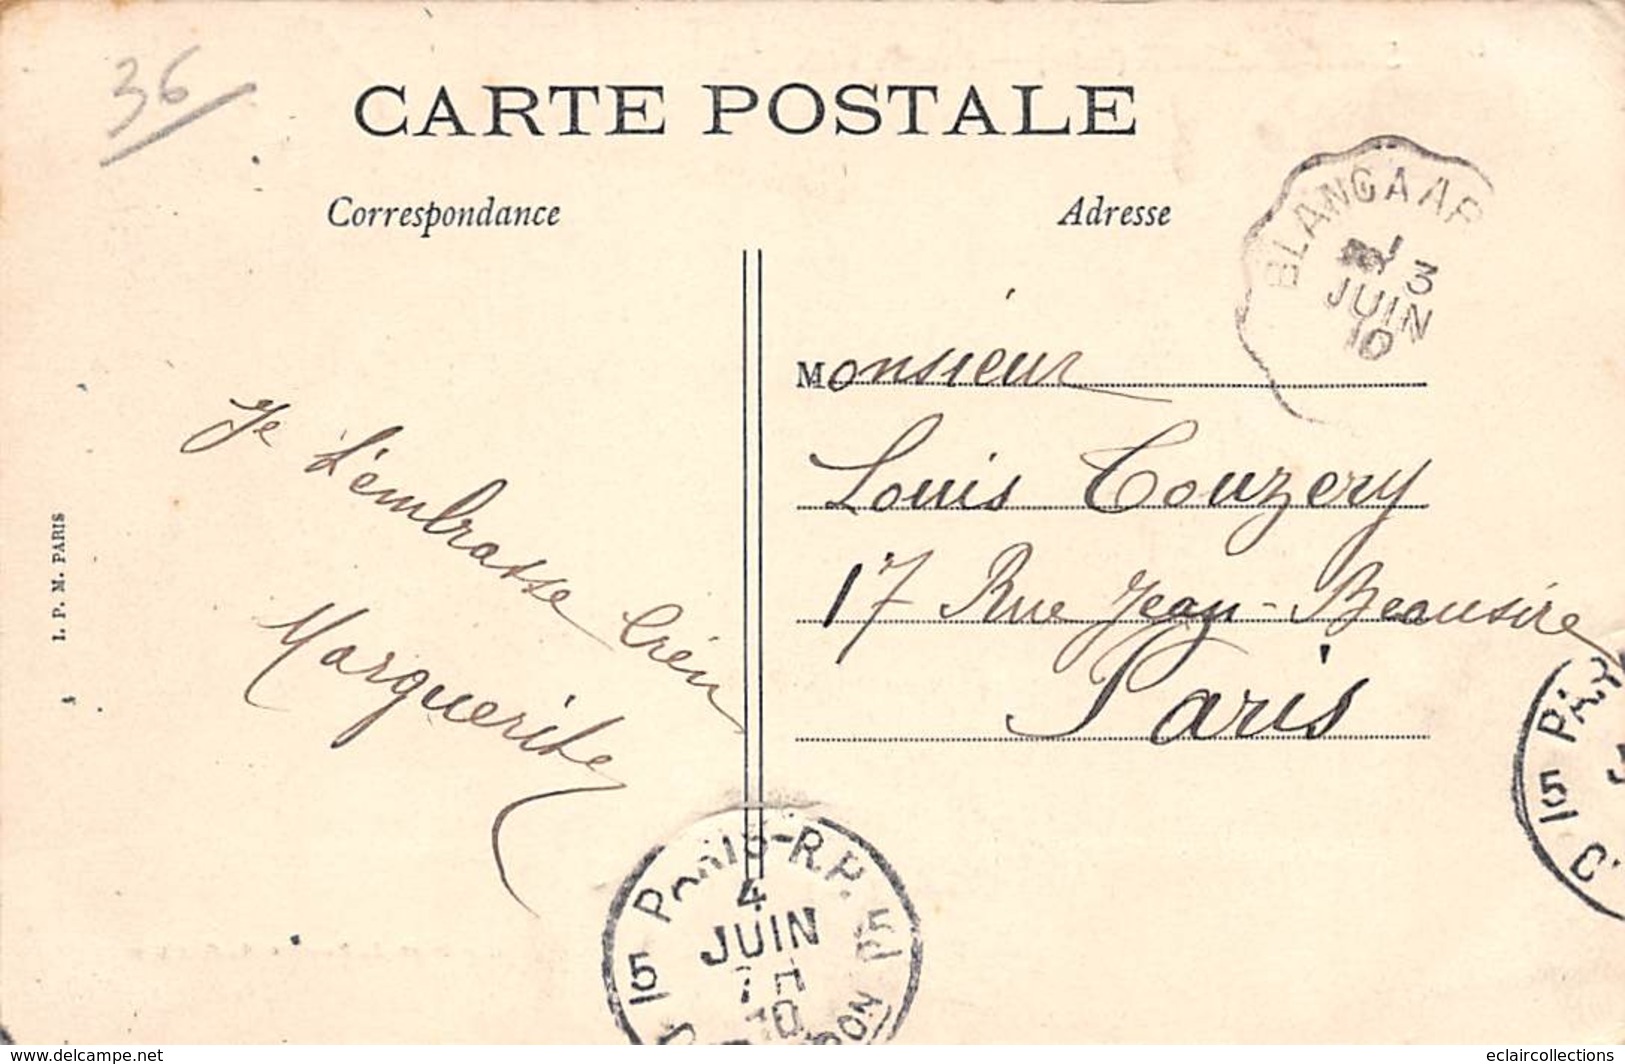 36
CARTE POSTALE
Correspondance
Adresse
BLANC A AR
3
JUIN
10
Monsieur
Louis Couzery
17 Rue Jean-Beausire
Paris
Je t'embrasse bien
Marguerite
I. P. M. PARIS
PARIS-R.P.
4
JUIN
15
15 PAR
www.delcampe.net
eclaircollections